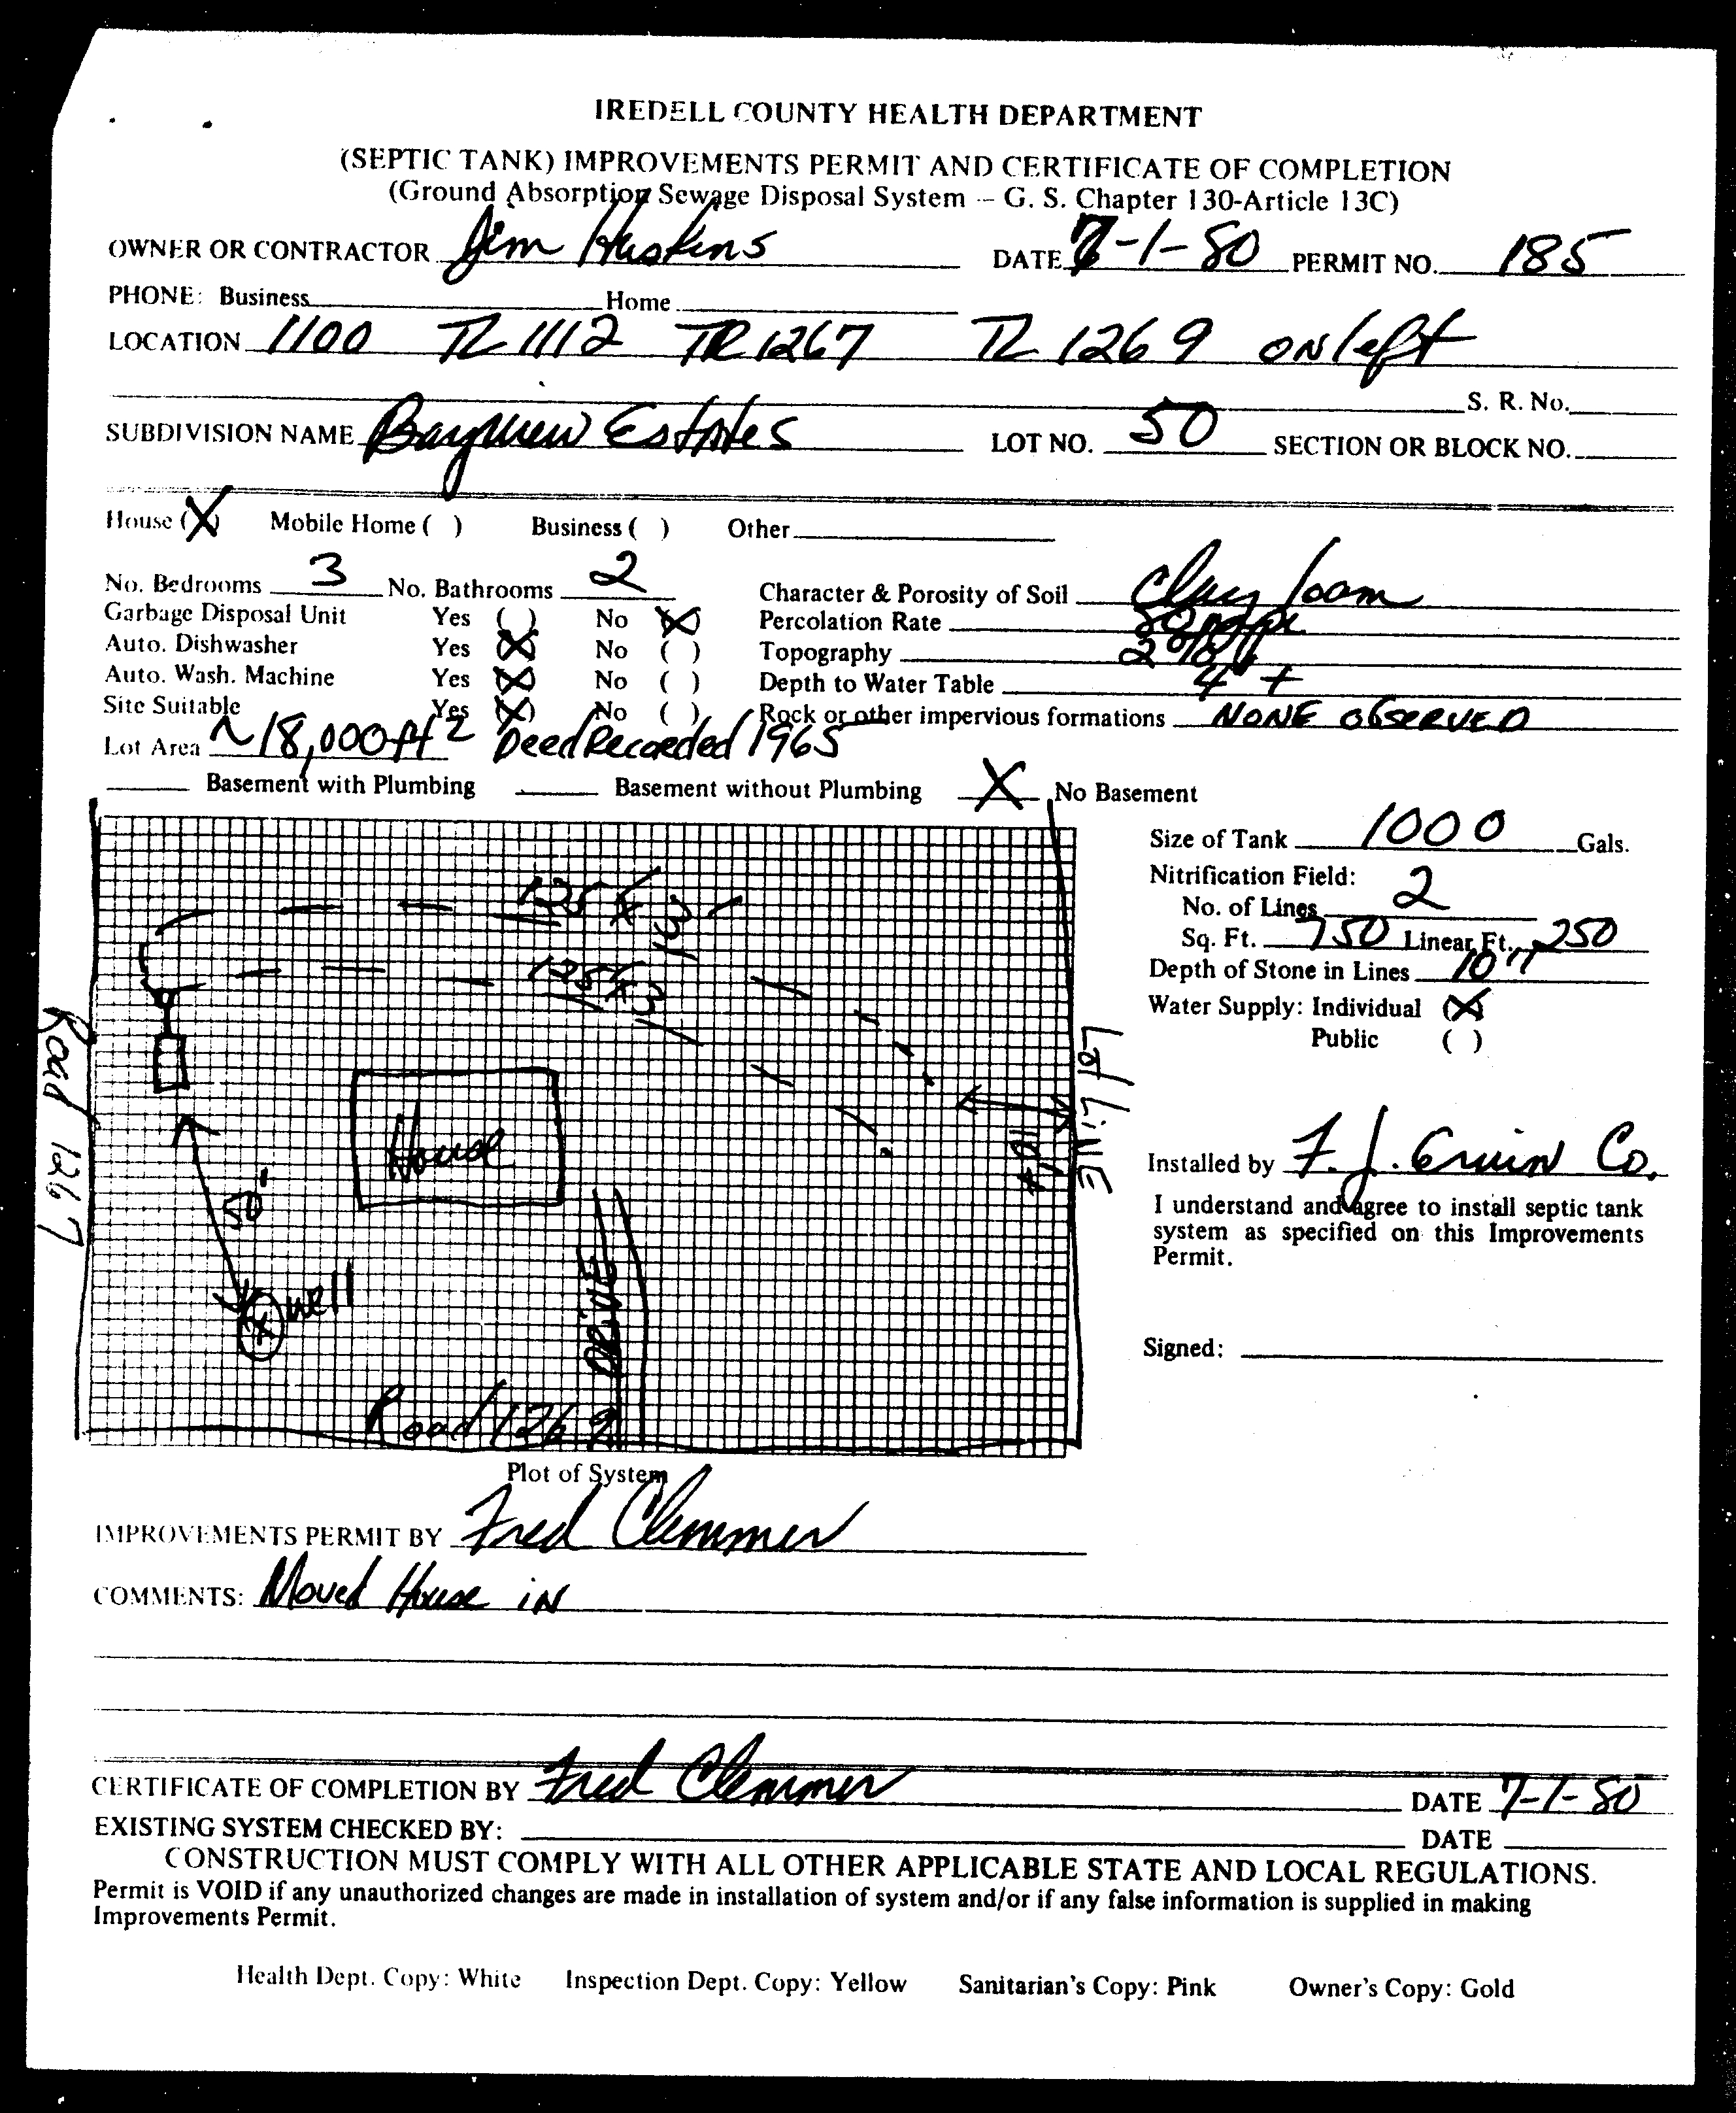 IREDELL COUNTY HEALTH DEPARTMENT
(SEPTIC TANK) IMPROVEMENTS PERMIT AND CERTIFICATE OF COMPLETION
(Ground Absorption Sewage Disposal System -- G. S. Chapter 130-Article 13C)
OWNER OR CONTRACTOR Jim Huskins DATE 7-1-80 PERMIT NO. 185
PHONE: Business Home
LOCATION 1100 TL 1112 TR 1267 TL 1269 on left
S. R. No.
SUBDIVISION NAME Bayview Estates LOT NO. 50 SECTION OR BLOCK NO.
House (X) Mobile Home ( ) Business ( ) Other
No. Bedrooms 3 No. Bathrooms 2 Character & Porosity of Soil Clay loam
Garbage Disposal Unit Yes ( ) No (X) Percolation Rate
Auto. Dishwasher Yes (X) No ( ) Topography
Auto. Wash. Machine Yes (X) No ( ) Depth to Water Table 4' +
Site Suitable Yes (X) No ( ) Rock or other impervious formations NONE OBSERVED
Lot Area ~18,000 ft2 Deed Recorded 1965
Basement with Plumbing Basement without Plumbing X No Basement
Size of Tank 1000 Gals.
Nitrification Field:
No. of Lines 2
Sq. Ft. 750 Linear Ft. 250
Depth of Stone in Lines 10"
Water Supply: Individual (X)
Public ( )
Installed by F. J. Ervin Co.
I understand and agree to install septic tank
system as specified on this Improvements
Permit.
Signed:
125 x 3
125 x 3
Road 1267
Lot LiNE
House
50'
well
DRiVE
Road 1269
Plot of System
IMPROVEMENTS PERMIT BY Fred Clemmer
COMMENTS: Moved House iN
CERTIFICATE OF COMPLETION BY Fred Clemmer DATE 7-1-80
EXISTING SYSTEM CHECKED BY: DATE
CONSTRUCTION MUST COMPLY WITH ALL OTHER APPLICABLE STATE AND LOCAL REGULATIONS.
Permit is VOID if any unauthorized changes are made in installation of system and/or if any false information is supplied in making
Improvements Permit.
Health Dept. Copy: White Inspection Dept. Copy: Yellow Sanitarian's Copy: Pink Owner's Copy: Gold